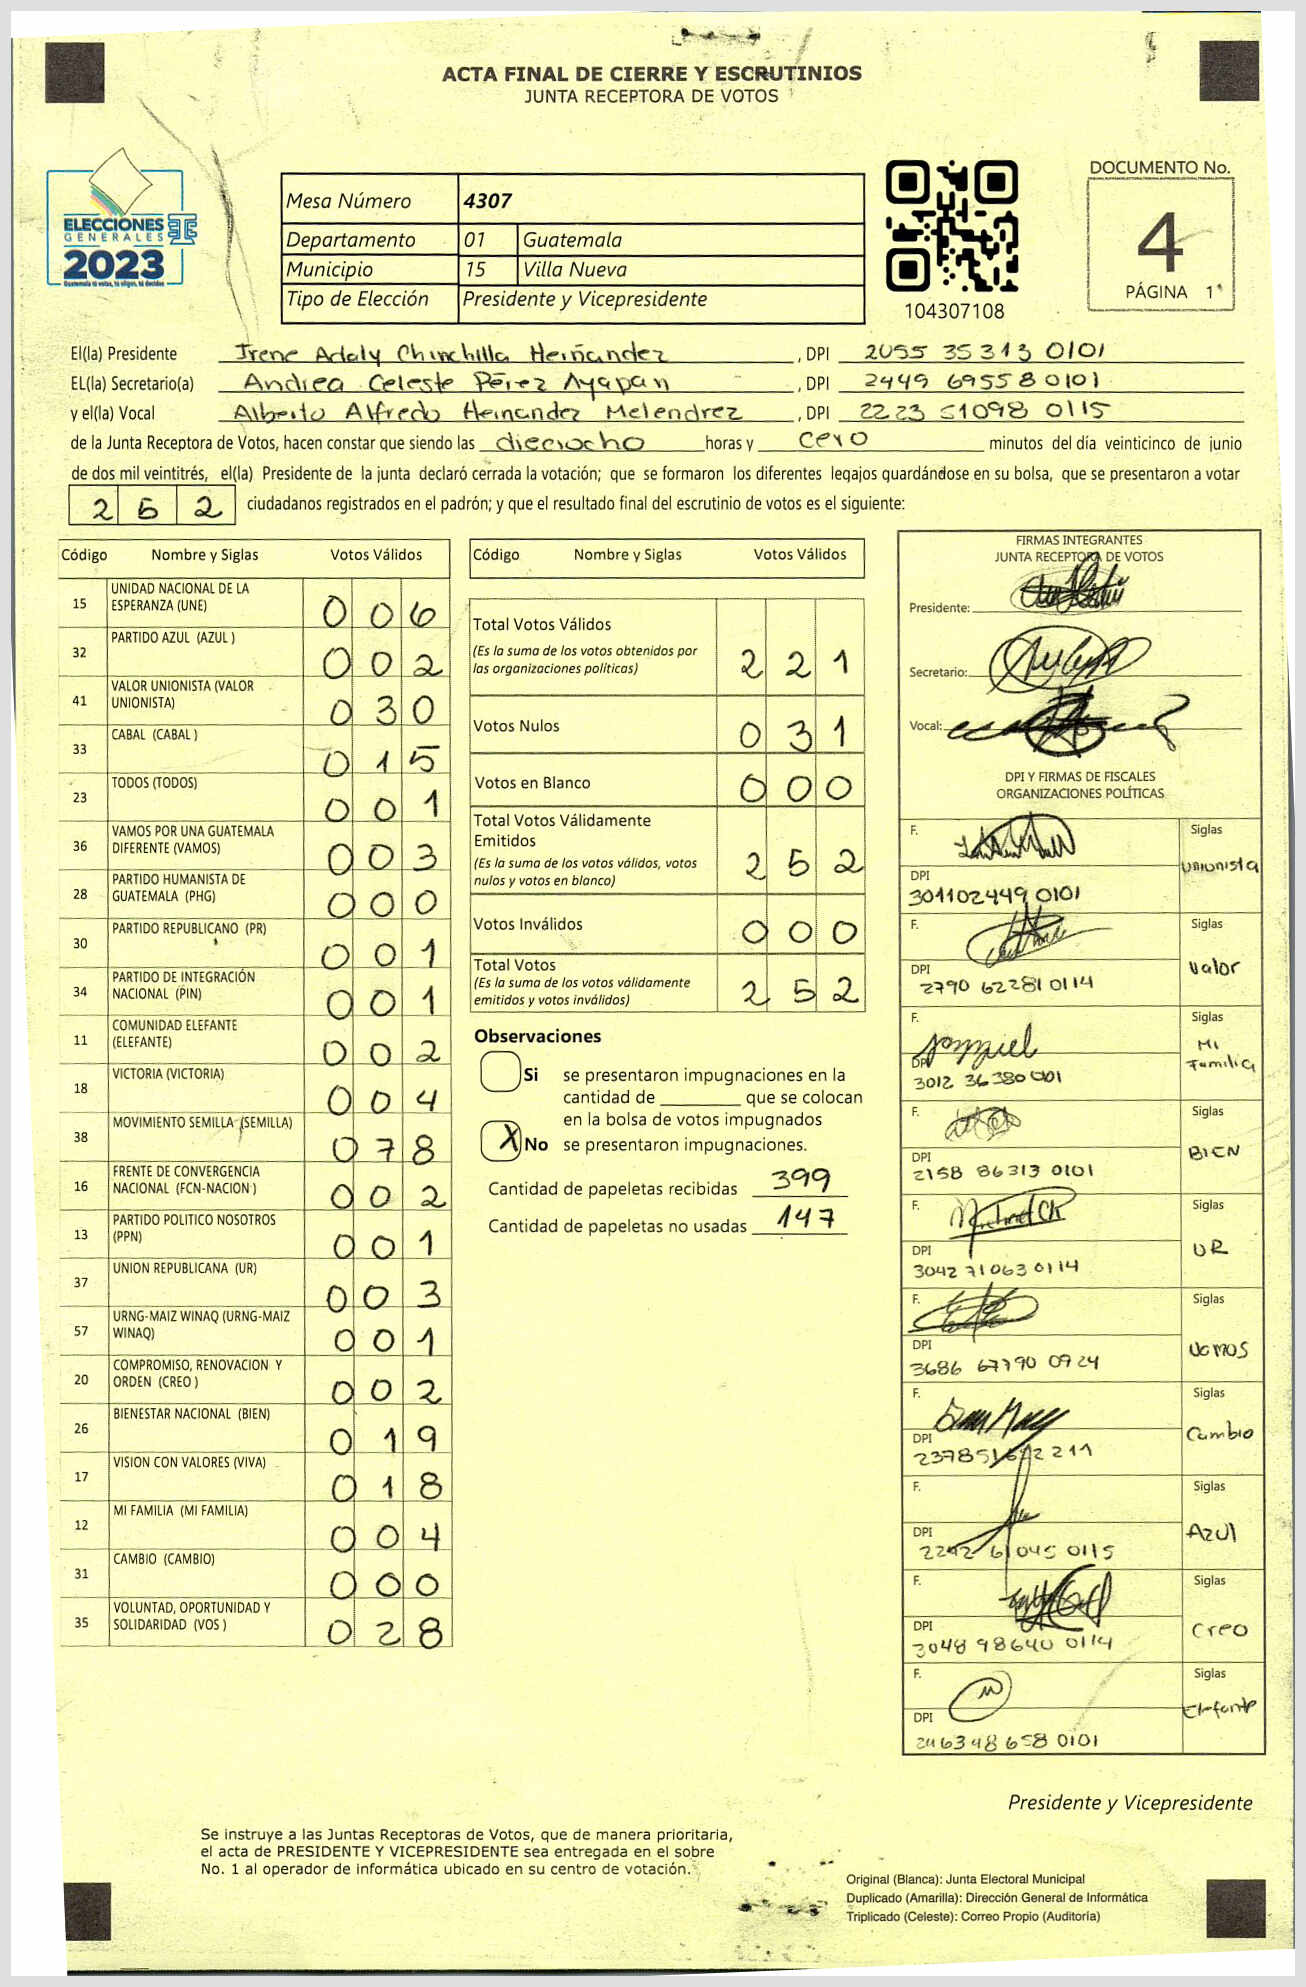 ACTA FINAL DE CIERRE Y ESCRUTINIOS
JUNTA RECEPTORA DE VOTOS
ELECCIONES
GENERALES
2023
Guatemala tú votas, tú eliges, tú decides
Mesa Número 4307
Departamento 01 Guatemala
Municipio 15 Villa Nueva
Tipo de Elección Presidente y Vicepresidente
104307108
DOCUMENTO No.
4
PÁGINA 1
El(la) Presidente Irene Adaly Chinchilla Hernandez, DPI 2055 35313 0101
EL(la) Secretario(a) Andrea Celeste Pérez Ayapan, DPI 2449 69558 0101
y el(la) Vocal Alberto Alfredo Hernandez Melendrez, DPI 2223 51098 0115
de la Junta Receptora de Votos, hacen constar que siendo las dieciocho horas y cero minutos del día veinticinco de junio
de dos mil veintitrés, el(la) Presidente de la junta declaró cerrada la votación; que se formaron los diferentes legajos guardándose en su bolsa, que se presentaron a votar
252 ciudadanos registrados en el padrón; y que el resultado final del escrutinio de votos es el siguiente:
Código Nombre y Siglas Votos Válidos
15 UNIDAD NACIONAL DE LA ESPERANZA (UNE) 006
32 PARTIDO AZUL (AZUL ) 002
41 VALOR UNIONISTA (VALOR UNIONISTA) 030
33 CABAL (CABAL ) 015
23 TODOS (TODOS) 001
36 VAMOS POR UNA GUATEMALA DIFERENTE (VAMOS) 003
28 PARTIDO HUMANISTA DE GUATEMALA (PHG) 000
30 PARTIDO REPUBLICANO (PR) 001
34 PARTIDO DE INTEGRACIÓN NACIONAL (PIN) 001
11 COMUNIDAD ELEFANTE (ELEFANTE) 002
18 VICTORIA (VICTORIA) 004
38 MOVIMIENTO SEMILLA (SEMILLA) 078
16 FRENTE DE CONVERGENCIA NACIONAL (FCN-NACION ) 002
13 PARTIDO POLITICO NOSOTROS (PPN) 001
37 UNION REPUBLICANA (UR) 003
57 URNG-MAIZ WINAQ (URNG-MAIZ WINAQ) 001
20 COMPROMISO, RENOVACION Y ORDEN (CREO ) 002
26 BIENESTAR NACIONAL (BIEN) 019
17 VISION CON VALORES (VIVA) 018
12 MI FAMILIA (MI FAMILIA) 004
31 CAMBIO (CAMBIO) 000
35 VOLUNTAD, OPORTUNIDAD Y SOLIDARIDAD (VOS ) 028
Código Nombre y Siglas Votos Válidos
Total Votos Válidos 221
(Es la suma de los votos obtenidos por
las organizaciones políticas)
Votos Nulos 031
Votos en Blanco 000
Total Votos Válidamente
Emitidos 252
(Es la suma de los votos válidos, votos
nulos y votos en blanco)
Votos Inválidos 000
Total Votos 252
(Es la suma de los votos válidamente
emitidos y votos inválidos)
Observaciones
Si se presentaron impugnaciones en la
cantidad de ________ que se colocan
en la bolsa de votos impugnados
X No se presentaron impugnaciones.
Cantidad de papeletas recibidas 399
Cantidad de papeletas no usadas 147
FIRMAS INTEGRANTES
JUNTA RECEPTORA DE VOTOS
Presidente:
Secretario:
Vocal:
DPI Y FIRMAS DE FISCALES
ORGANIZACIONES POLÍTICAS
F. Siglas Unionista
DPI 301102449 0101
F. Siglas Valor
DPI 2790 62281 0114
F. Siglas Mi Familia
DPI 3012 36380 0101
F. Siglas BIEN
DPI 2158 86313 0101
F. Siglas UR
DPI 3042 71063 0114
F. Siglas Vamos
DPI 3686 67790 0924
F. Siglas Cambio
DPI
F. Siglas Azul
DPI 2242 61045 0115
F. Siglas Creo
DPI 3048 98640 0114
F. Siglas Elefante
DPI 2463 48 658 0101
Presidente y Vicepresidente
Se instruye a las Juntas Receptoras de Votos, que de manera prioritaria,
el acta de PRESIDENTE Y VICEPRESIDENTE sea entregada en el sobre
No. 1 al operador de informática ubicado en su centro de votación.
Original (Blanca): Junta Electoral Municipal
Duplicado (Amarilla): Dirección General de Informática
Triplicado (Celeste): Correo Propio (Auditoría)